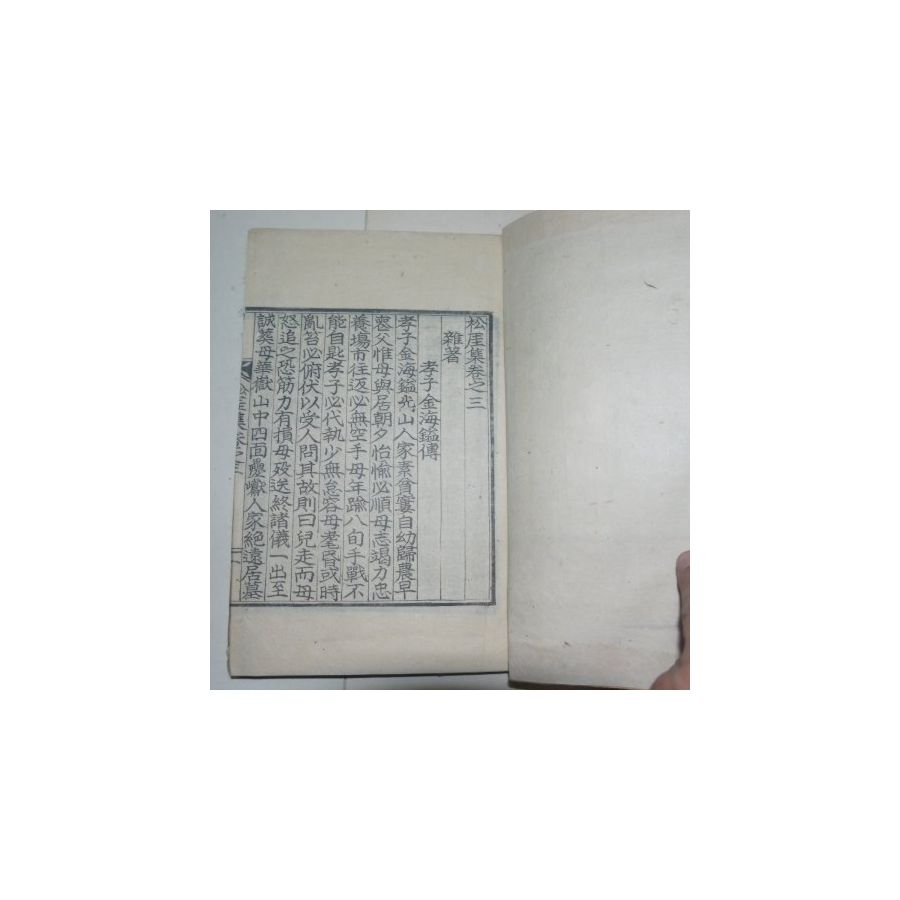 松厓集卷之三
雜著
孝子金海鎰傳
孝子金海鎰光山人家素貧窶自幼歸農早
喪父惟母與居朝夕怡愉必順母志竭力忠
養場市往返必無空手母年踰八旬手戰不
能自匙孝子必代執少無怠容母耄昏或時
亂笞必俯伏以受人問其故則曰兒走而母
怒追之恐筋力有損母歿送終諸儀一出至
誠葬母華嶽山中四面疊巘人家絕遠居墓
松厓集卷之三
一